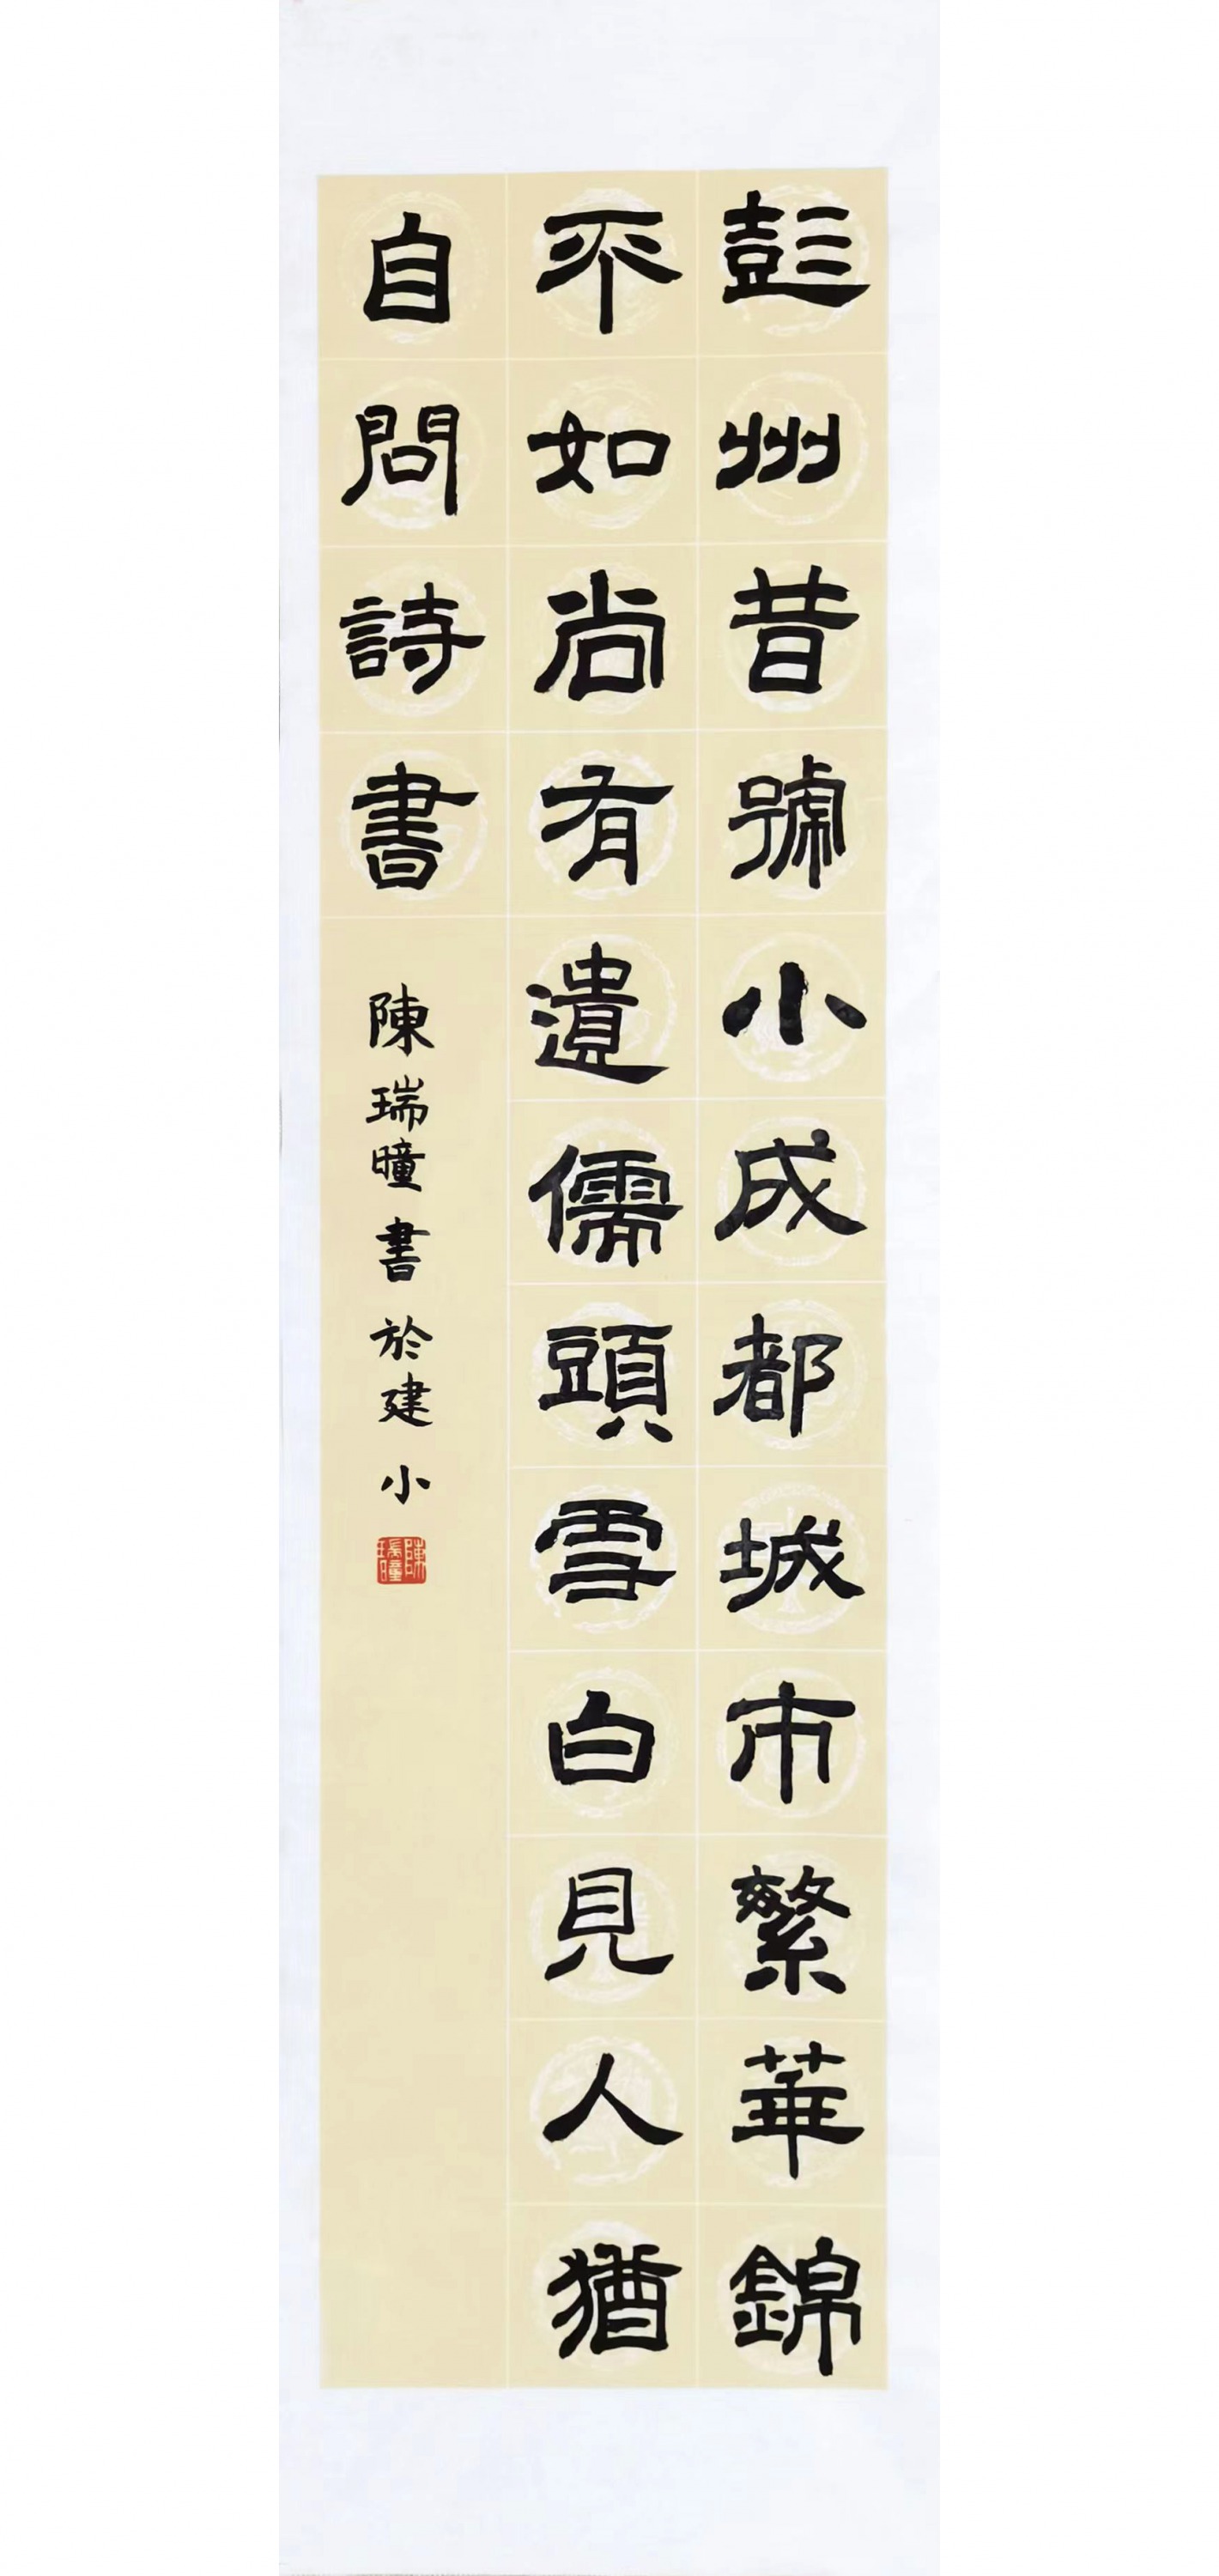 彭州昔號小成都城市繁華錦
不如尚有遺儒頭雪白見人猶
自問詩書
陳瑞曈書於建小
陳瑞曈